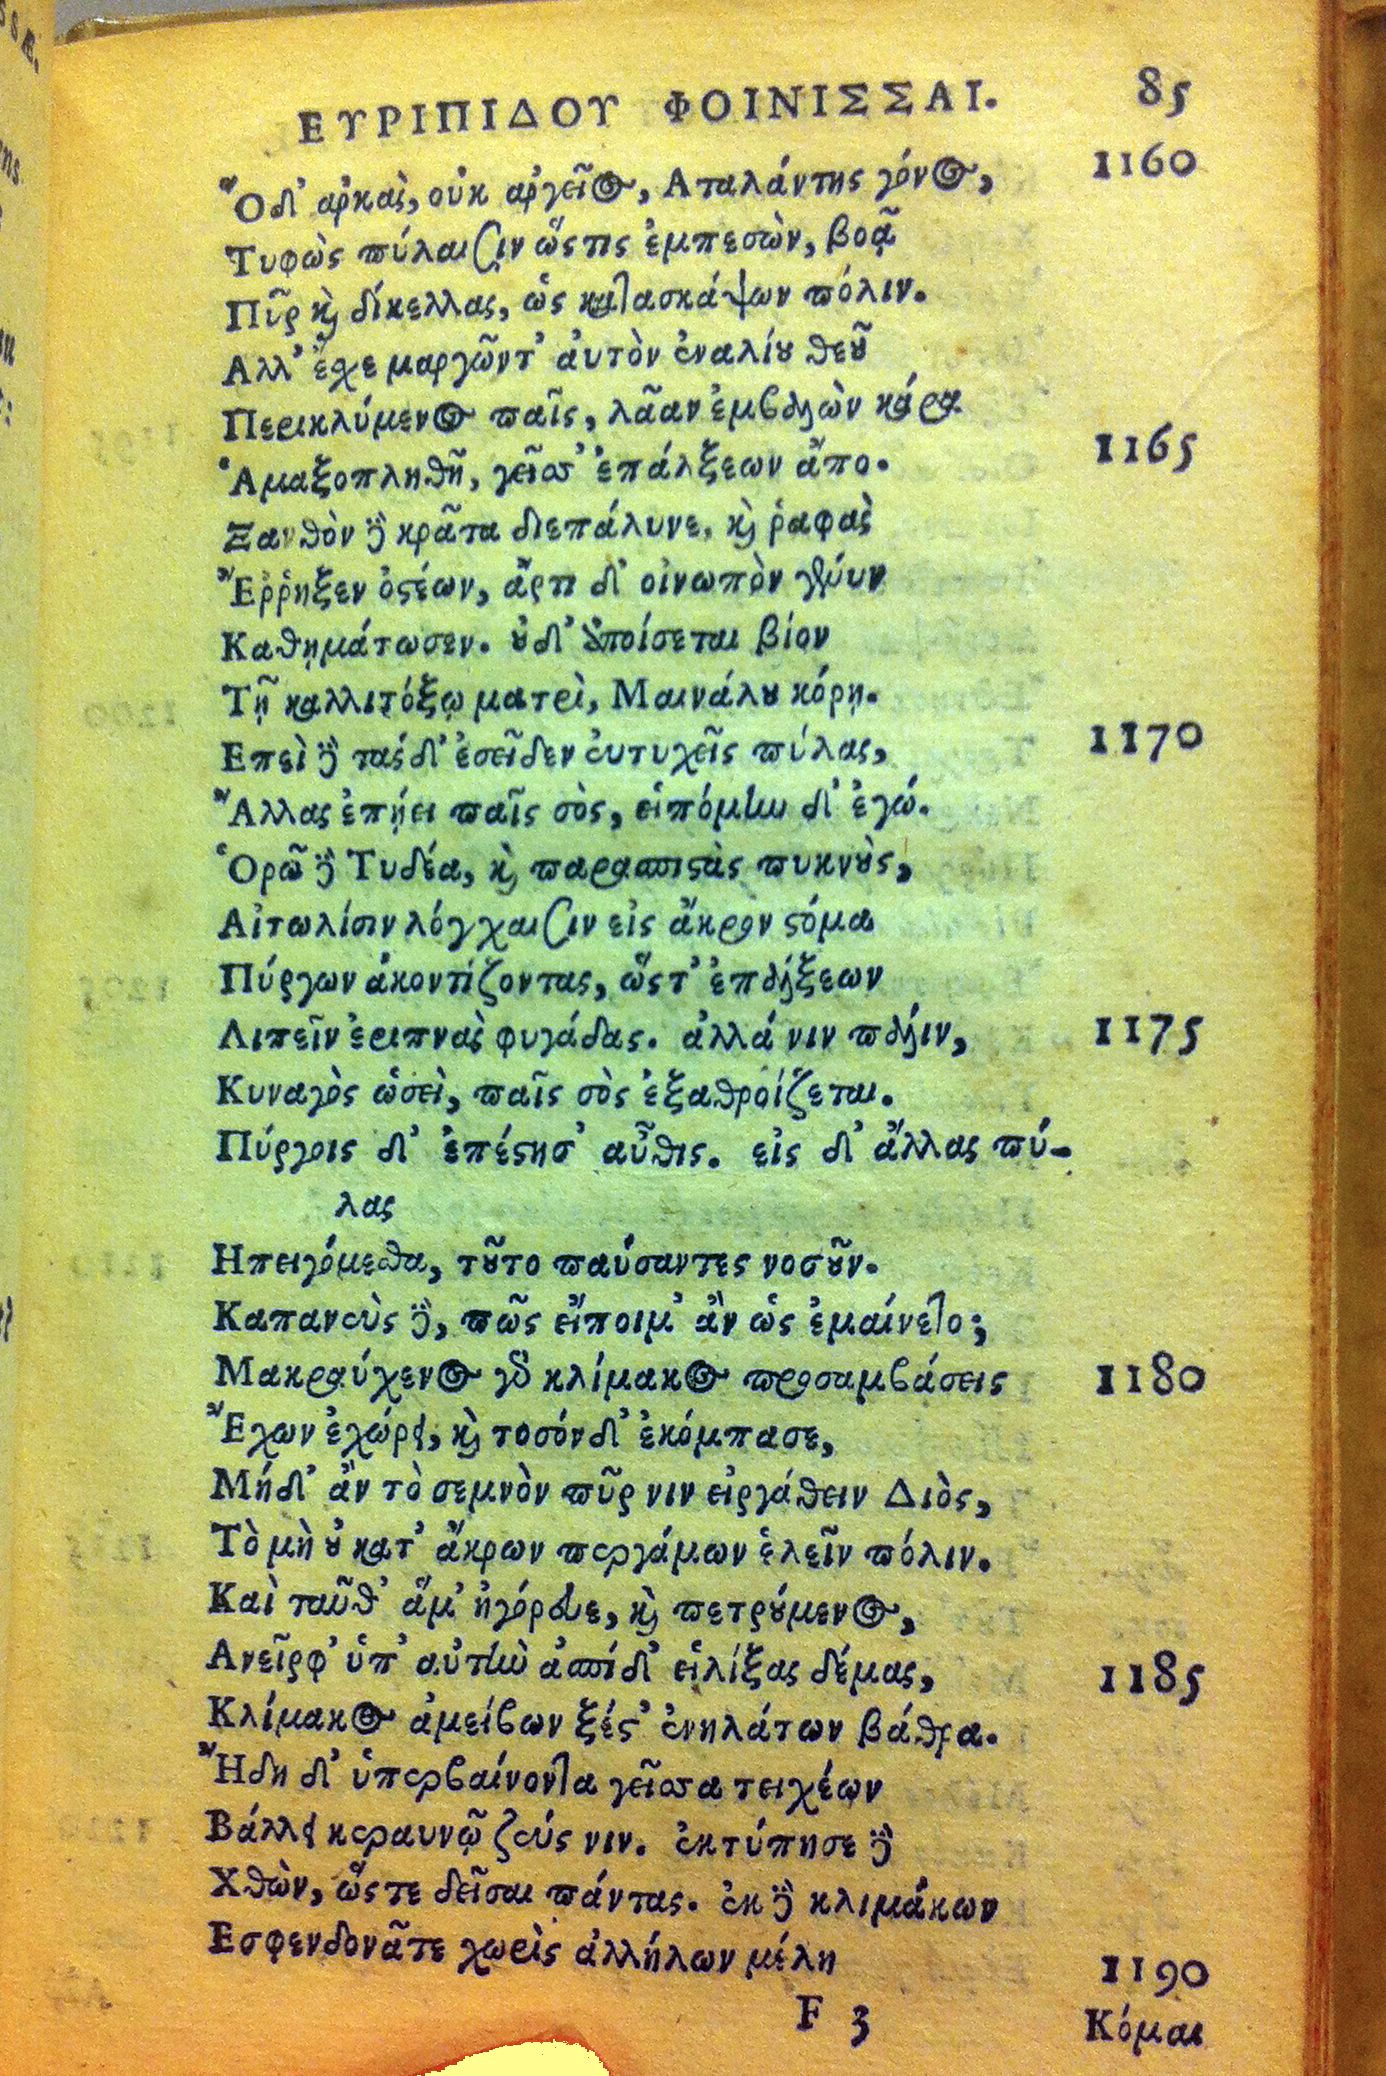 ΕΥΡΙΠΙΔΟΥ ΦΟΙΝΙΣΣΑΙ. 85
Ὅδ' ἀρκὰς, οὐκ ἀργεῖος, Αταλάντης γόνος, 1160
Τυφὼς πύλαισιν ὥς τις ἐμπεσὼν, βοᾷ
Πῦρ καὶ δίκελλας, ὡς κατασκάψων πόλιν.
Αλλ' ἔσχε μαργῶντ' ἀυτὸν ἐναλίου θεοῦ
Περικλύμενος παῖς, λᾶαν ἐμβαλὼν κάρα
Ἁμαξοπληθῆ, γεῖσ' ἐπάλξεων ἄπο. 1165
Ξανθὸν δὲ κρᾶτα διεπάλυνε, καὶ ῥαφὰς
Ἔῤῥηξεν ὀστέων, ἄρτι δ' οἰνωπὸν γένυν
Καθημάτωσεν. οὐδ' ἀποίσεται βίον
Τῇ καλλιτόξῳ ματρὶ, Μαινάλου κόρῃ.
Επεὶ δὲ τάσδ' ἐσεῖδεν εὐτυχεῖς πύλας, 1170
Ἄλλας ἐπῄει παῖς σὸς, εἱπόμην δ' ἐγώ.
Ὁρῶ δὲ Τυδέα, καὶ παρασπιστὰς πυκνοὺς,
Αἰτωλίσιν λόγχαισιν εἰς ἄκρον στόμα
Πύργων ἀκοντίζοντας, ὥστ' ἐπάλξεων
Λιπεῖν ἐριπνὰς φυγάδας. ἀλλά νιν πάλιν, 1175
Κυναγὸς ὡσεὶ, παῖς σὸς ἐξαθροίζεται.
Πύργοις δ' ἐπέστησ' αὖθις. εἰς δ' ἄλλας πύ-
λας
Ηπειγόμεσθα, τοῦτο παύσαντες νοσοῦν.
Καπανεὺς δὲ, πῶς εἴποιμ' ἂν ὡς ἐμαίνετο;
Μακραύχενος γὰρ κλίμακος προσαμβάσεις 1180
Ἔχων ἐχώρει, καὶ τοσόνδ' ἐκόμπασε,
Μήδ' ἂν τὸ σεμνὸν πῦρ νιν εἰργάθειν Διὸς,
Τὸ μὴ οὐ κατ' ἄκρων περγάμων ἑλεῖν πόλιν.
Καὶ ταῦθ' ἅμ' ἠγόρευε, καὶ πετρούμενος,
Ανεῖρφ' ὑπ' αὐτὴν ἀσπίδ' εἱλίξας δέμας, 1185
Κλίμακος ἀμείβων ξέστ' ἐνηλάτων βάθρα.
Ἤδη δ' ὑπερβαίνοντα γεῖσσα τειχέων
Βάλλει κεραυνῷ ζεύς νιν. ἐκτύπησε δὲ
Χθὼν, ὥστε δεῖσαι πάντας. ἐκ δὲ κλιμάκων
Εσφενδονᾶτε χωρὶς ἀλλήλων μέλη 1190
F 3 Κόμαι